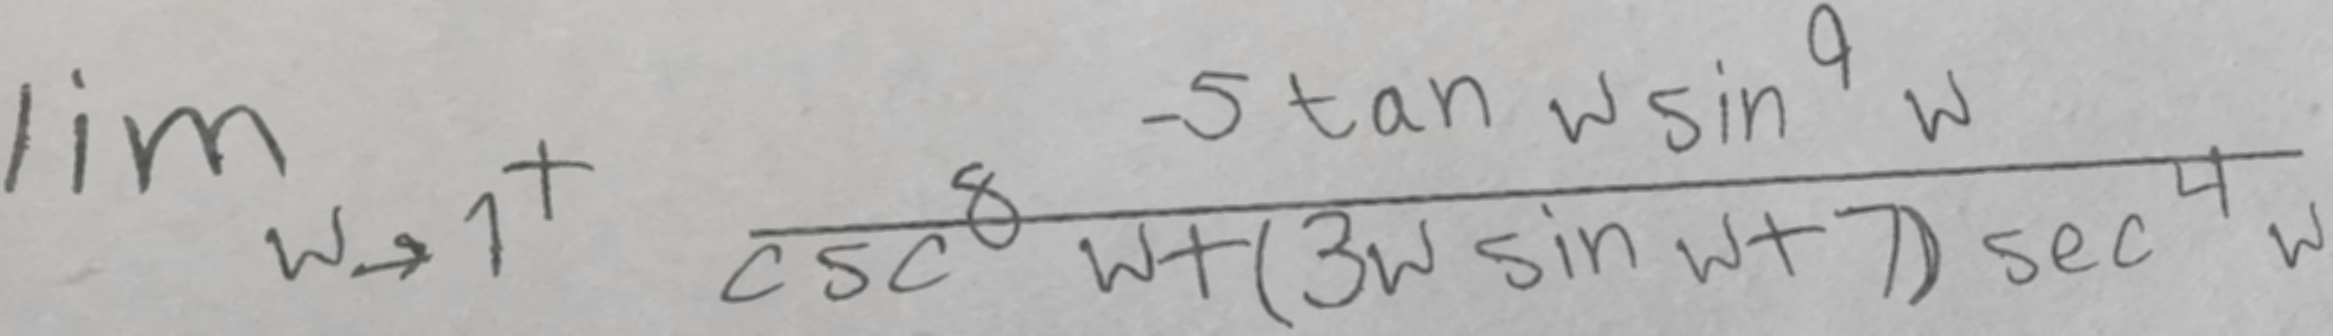 \lim_{w \to 1^+} \frac{-5 \tan w \sin^9 w}{\csc^8 w + (3w \sin w + 7) \sec^4 w}